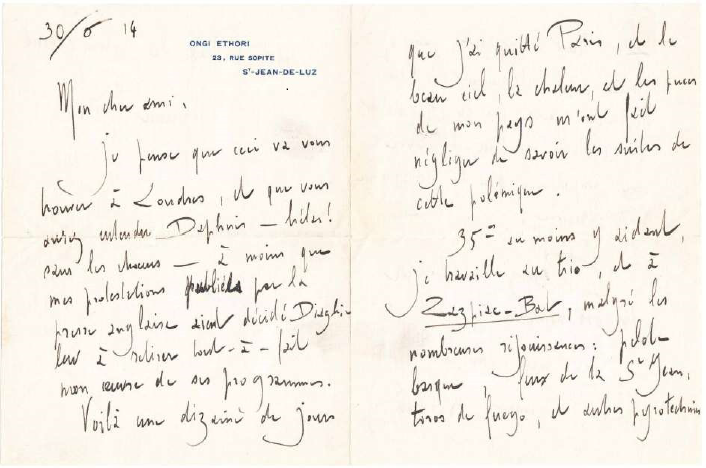 30/6 14
ONGI ETHORI
23, RUE SOPITE
St-JEAN-DE-LUZ
Mon cher ami,
je pense que ceci va vous
trouver à Londres, et que vous
aurez entendu Daphnis — hélas!
sans les chœurs — à moins que
mes protestations publiées par la
presse anglaise aient décidé Diaghi-
lew à retirer tout-à-fait
mon œuvre de ses programmes.
Voilà une dizaine de jours
que j'ai quitté Paris, et le
beau ciel, la chaleur, et les puces
de mon pays m'ont fait
négliger de savoir les suites de
cette polémique.
35° au moins y aidant,
je travaille au trio, et à
Zazpiac-Bat, malgré les
nombreuses réjouissances: pelote
basque, feux de la St Jean,
toros de fuego, et autres pyrotechnies